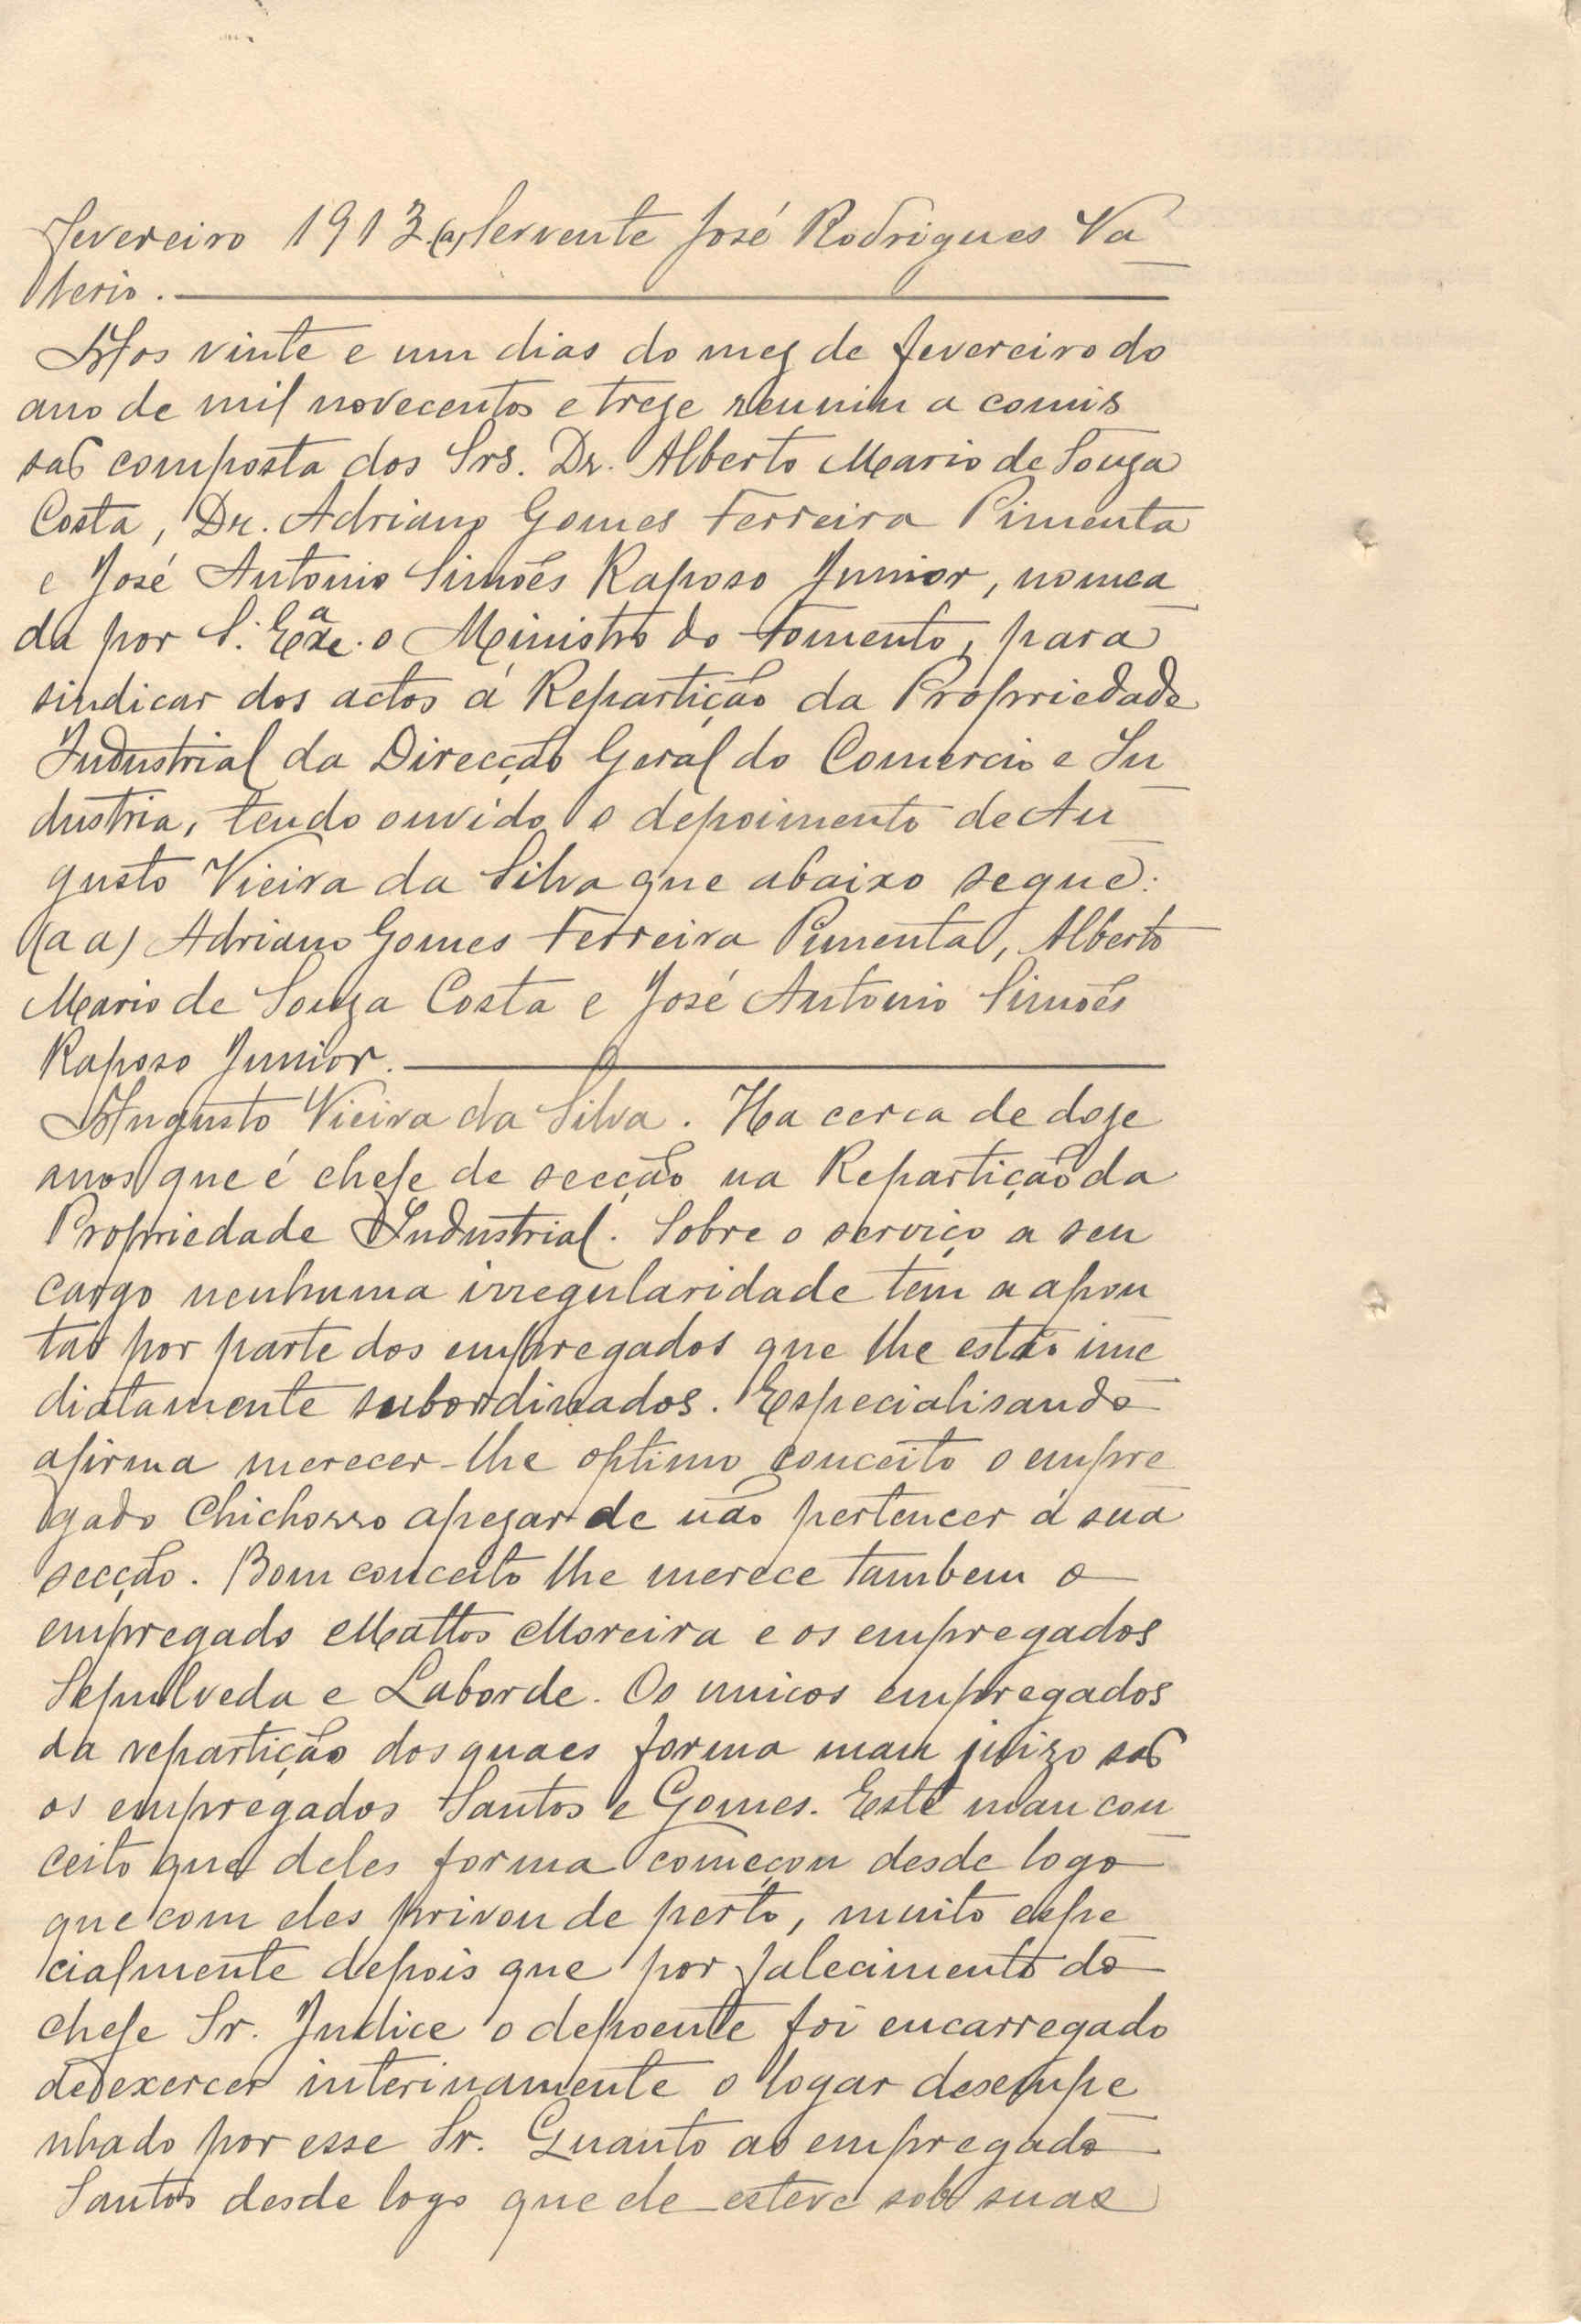 fevereiro 1913. (a) Servente José Rodrigues Va
lerio.
Aos vinte e um dias do mez de fevereiro do
ano de mil novecentos e treze reuniu a comis
saõ composta dos Srs. Dr. Alberto Mario de Souza
Costa, Dr. Adriano Gomes Ferreira Pimenta
e José Antonio Simões Raposo Junior, nomea
da por S. Exa. o Ministro do Fomento, para
sindicar dos actos á Repartição da Propriedade
Industrial da Direcção Geral do Comercio e In
dustria, tendo ouvido o depoimento de Au
gusto Vieira da Silva que abaixo segue:
(a a) Adriano Gomes Ferreira Pimenta, Alberto
Mario de Souza Costa e José Antonio Simões
Raposo Junior.
Augusto Vieira da Silva. Ha cerca de doze
anos que é chefe de secção na Repartição da
Propriedade Industrial. Sobre o serviço a seu
cargo nenhuma irregularidade tem a apon
tar por parte dos empregados que lhe estão ime
diatamente subordinados. Especialisando
afirma merecer-lhe optimo conceito o empre
gado Chichorro apezar de não pertencer á sua
secção. Bom conceito lhe merece tambem o
empregado Mattos Moreira e os empregados
Sepulveda e Laborde. Os unicos empregados
da repartição dos quaes forma mau juizo saõ
os empregados Santos e Gomes. Este mau con
ceito que deles forma começou desde logo
que com eles privou de perto, muito espe
cialmente depois que por falecimento do
chefe Sr. Judice o depoente foi encarregado
de exercer interinamente o logar desempe
nhado por esse Sr. Quanto ao empregado
Santos desde logo que ele esteve sob suas